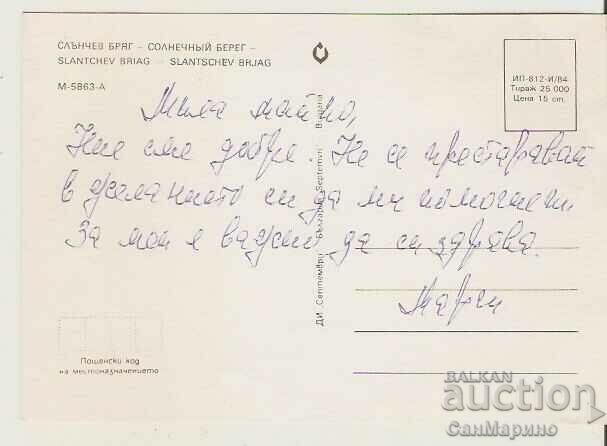 СЛЪНЧЕВ БРЯГ – СОЛНЕЧНЫЙ БЕРЕГ –
SLANTCHEV BRIAG – SLANTSCHEV BRJAG
М-5863-А
ИП-812-И/84
Тираж 25 000
Цена 15 ст.
Мила майко,
Ние сме добре. Не се престаравай
в желанието си да ми помогнеш.
За мен е важно да си здрава.
Мареи
ДИ „Септември“ България Septemvri Bulgaria
Пощенски код
на местоназначението
BALKAN
auction
СанМарино